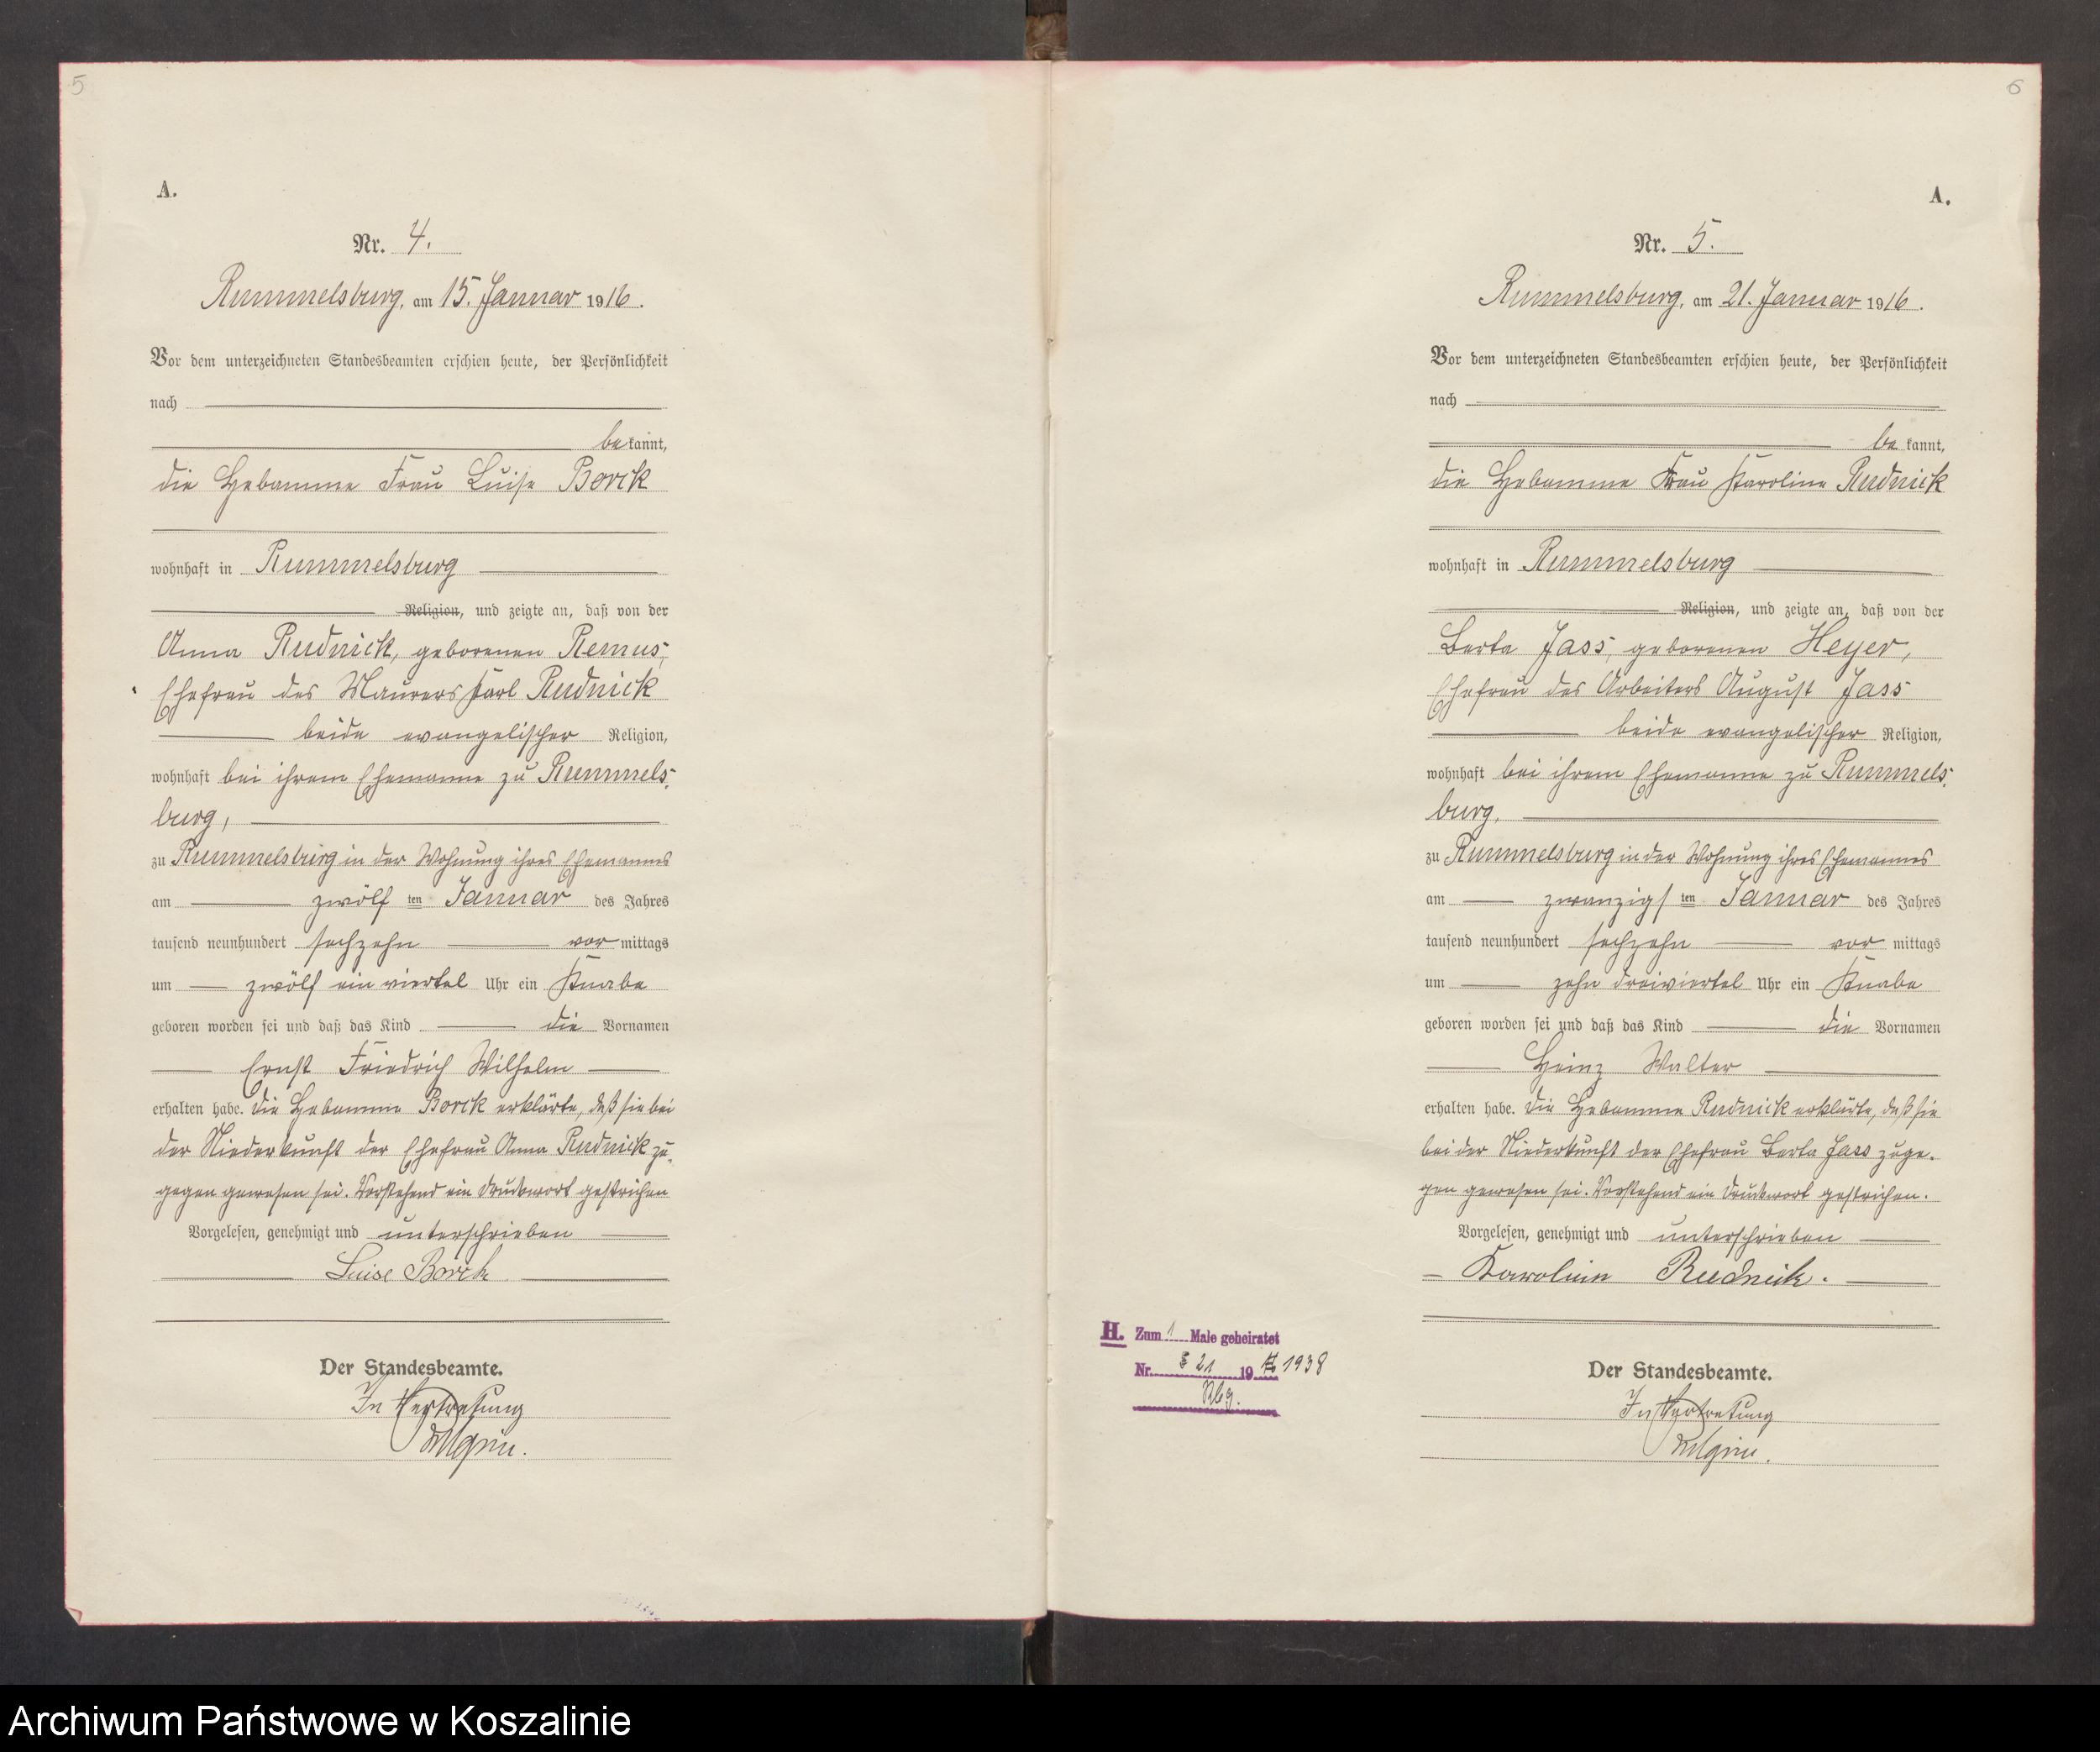 5
A.
Nr. 4.
Rummelsburg, am 15. Januar 1916.
Vor dem unterzeichneten Standesbeamten erschien heute, der Persönlichkeit
nach
bekannt,
die Hebamme Frau Luise Borck
wohnhaft in Rummelsburg
Religion, und zeigte an, daß von der
Anna Rudnick, geborenen Remus,
Ehefrau des Maurers Karl Rudnick
beide evangelischer Religion,
wohnhaft bei ihrem Ehemanne zu Rummels-
burg,
zu Rummelsburg in der Wohnung ihres Ehemannes
am zwölf ten Januar des Jahres
tausend neunhundert sechzehn vor mittags
um zwölf ein viertel Uhr ein Knabe
geboren worden sei und daß das Kind die Vornamen
Ernst Friedrich Wilhelm
erhalten habe. Die Hebamme Borck erklärte, daß sie bei
der Niederkunft der Ehefrau Anna Rudnick zu-
gegen gewesen sei. Vorstehend ein Druckwort gestrichen
Vorgelesen, genehmigt und unterschrieben
Luise Borck
Der Standesbeamte.
In Vertretung
6
A.
Nr. 5.
Rummelsburg, am 21. Januar 1916.
Vor dem unterzeichneten Standesbeamten erschien heute, der Persönlichkeit
nach
be kannt,
die Hebamme Frau Karoline Rudnick
wohnhaft in Rummelsburg
Religion, und zeigte an, daß von der
Berta Jass, geborenen Heyer,
Ehefrau des Arbeiters August Jass
beide evangelischer Religion,
wohnhaft bei ihrem Ehemanne zu Rummels-
burg,
zu Rummelsburg in der Wohnung ihres Ehemannes
am zwanzigs ten Januar des Jahres
tausend neunhundert sechzehn vor mittags
um zehn dreiviertel Uhr ein Knabe
geboren worden sei und daß das Kind die Vornamen
Heinz Walter
erhalten habe. Die Hebamme Rudnick erklärte, daß sie
bei der Niederkunft der Ehefrau Berta Jass zuge-
gen gewesen sei. Vorstehend ein Druckwort gestrichen.
Vorgelesen, genehmigt und unterschrieben
Karoline Rudnick.
H. Zum 1 Male geheiratet
Nr. 21 19 1938
Rbg.
Der Standesbeamte.
In Vertretung
Archiwum Państwowe w Koszalinie